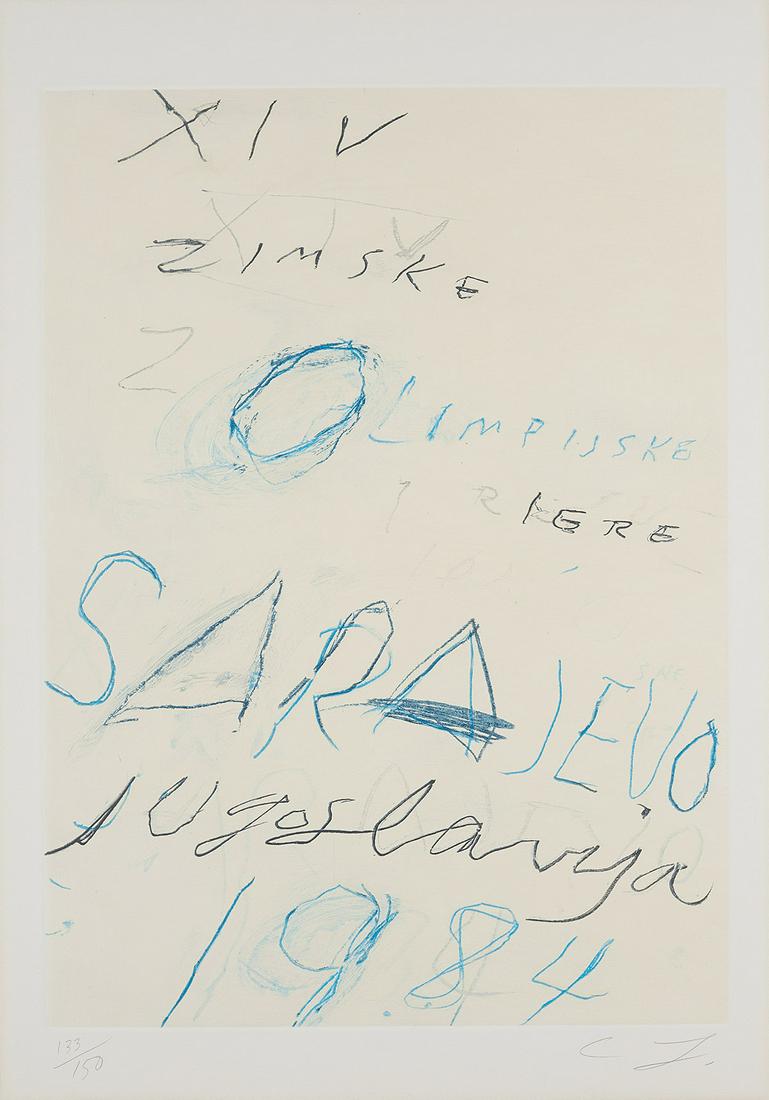 XIV
ZIMSKE
Z
OLIMPIJSKE
IERE
SARAJEVO
Jugoslavija
19.84
133/150